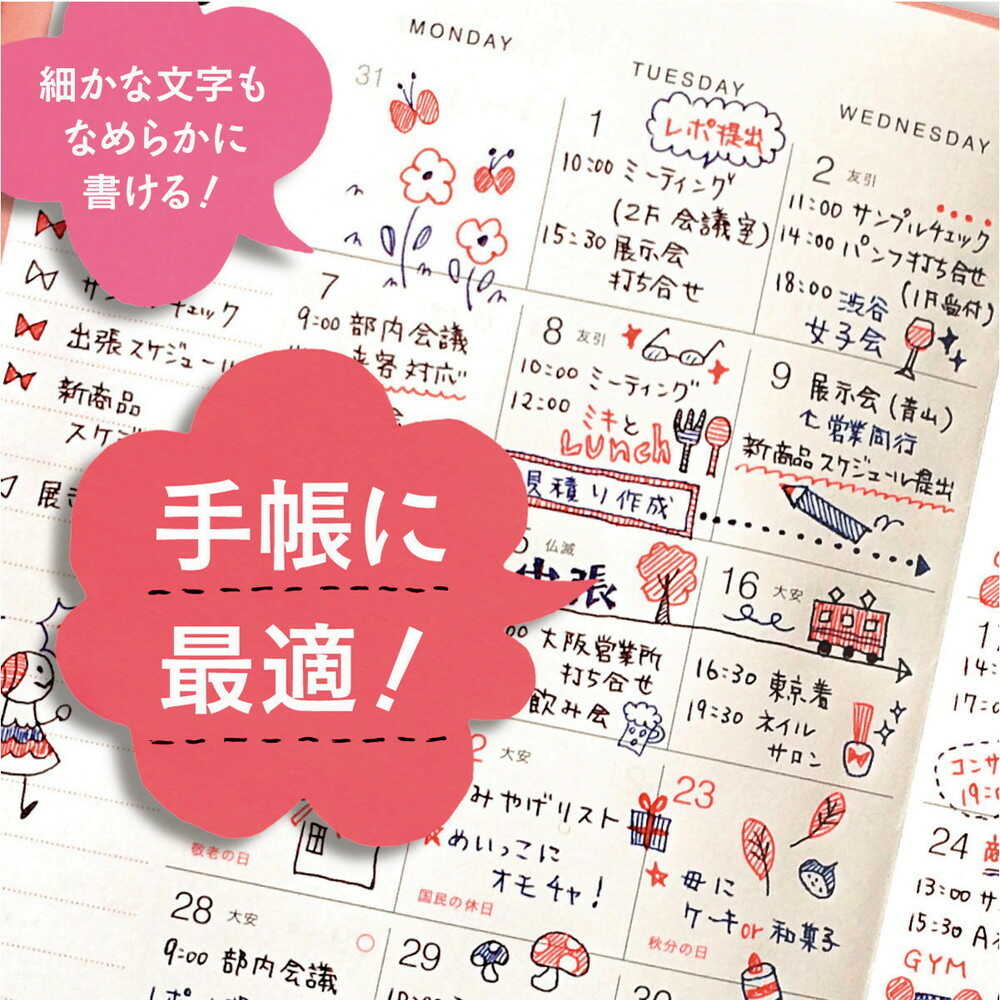 細かな文字も
なめらかに
書ける!
手帳に
最適!
MONDAY
TUESDAY
WEDNESDAY
31
1
レポ提出
10:00 ミーティング
(2F 会議室)
15:30 展示会
打ち合せ
2 友引
11:00 サンプルチェック
14:00 パンフ打ち合せ
(1F受付)
18:00 渋谷
女子会
出張スケジュール
新商品
7
9:00 部内会議
来客対応
8 友引
10:00 ミーティング
12:00 ミキと
Lunch
見積り作成
9 展示会(青山)
営業同行
新商品スケジュール提出
仏滅
出張
大阪営業所
打ち合せ
飲み会
16 大安
16:30 東京着
19:30 ネイル
サロン
敬老の日
大安
みやげリスト
めいっこに
オモチャ!
国民の休日
23
母に
ケーキor和菓子
秋分の日
28 大安
9:00 部内会議
29
30
17:0
24
13:00 サ
15:30 A
GYM